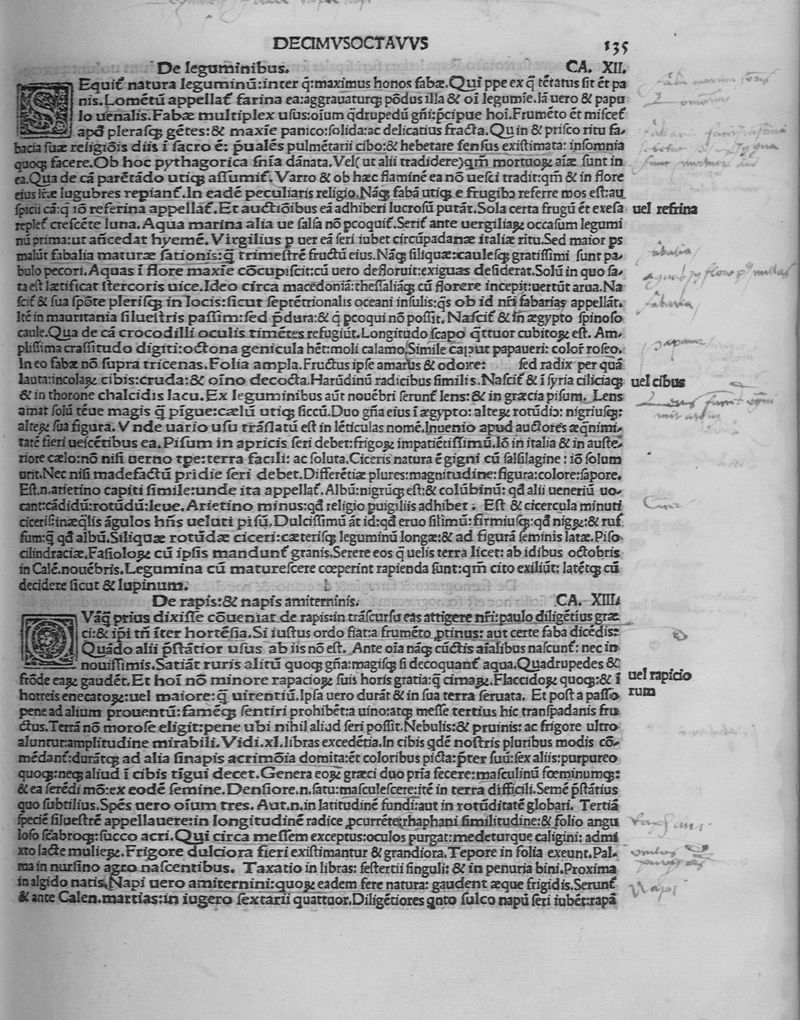 DECIMVSOCTAVVS 135
De leguminibus. CA. XII.
SEquit᷑ natura leguminū:inter q̄:maximus honos fabæ.Qui ppe ex q̄ tētatus sit ēt pa
nis.Lomētū appellat᷑ farina ea:aggrauaturqꝫ pōdus illa & oī legumīe.Iā uero & papu
lo uenalis.Fabæ multiplex usus:oīum q̄drupedū gn̄i:p̄cipue hoī.Frumēto ēt miscet᷑
apd̄ plerasqꝫ gētes:& maxīe panico:solida:ac delicatius fracta.Qu in & prisco ritu fa-
bacia suæ religiōis diis ī sacro ē: p̄ualēs pulmētarii cibo:& hebetare sensus existimata: insomnia
quoqꝫ facere.Ob hoc pythagorica sn̄ia dānata.Vel( ut alii tradidere)qm̄ mortuoꝝ aīæ sunt in
ea.Qua de cā parētādo utiqꝫ assumit᷑.Varro & ob hæc flaminē ea nō uesci tradit:qm̄ & in flore
eius lr̄æ lugubres repiant᷑.In eadē peculiaris religio.Nāqꝫ fabā utiqꝫ e frugibꝰ referre mos est:au
spicii cā:q̄ iō referina appellat᷑.Et auctiōibus eā adhiberi lucrosū putāt.Sola certa frugū ēt exesa uel refrina
replet᷑ crescēte luna.Aqua marina alia ue salsa nō pcoquit᷑.Serit᷑ ante uergiliaꝝ occasum legumi
nū prima:ut an̄cedat hyemē.Virgilius p uer eā seri iubet circūpadanæ italiæ ritu.Sed maior ps
malūt fabalia maturæ sationis:q̄ trimestrē fructū eius.Nāqꝫ siliquæ:caulesqꝫ gratissimi sunt pa-
bulo pecori.Aquas ī flore maxīe cōcupiscit:cū uero defloruit:exiguas desiderat.Solū in quo sa-
ta est lætificat stercoris uice.Ideo circa macedoniā:thessaliāqꝫ cū florere incepit:uertūt arua.Na
scit᷑ & sua spōte plerisqꝫ in locis:sicut septētrionalis oceani insulis:qs ob id nr̄i fabarias appellāt.
Itē in mauritania siluestris passim:sed p̄dura:& q̄ pcoqui nō possit.Nascit᷑ & in ægypto spinoso
caule.Qua de cā crocodilli oculis timētes refugiūt.Longitudo scapo q̄ttuor cubitoꝝ est. Am-
plissima crassitudo digiti:octona genicula hēt:moli calamo.Simile caput papaueri: color̄ roseo.
In eo fabæ nō supra tricenas.Folia ampla.Fructus ipse amarus & odore: sed radix per quā
lauta:incolaꝝ cibis:cruda:& oīno decocta.Harūdinū radicibus similis.Nascit᷑ & ī syria ciliciaqꝫ uel cibus
& in thorone chalcidis lacu.Ex leguminibus aūt nouēbri serunt᷑ lens:& in græcia pisum. Lens
amat solū tēue magis q̄ pīgue:cælū utiqꝫ siccū.Duo gn̄a eius ī ægypto: alteꝝ rotūdio: nigriusqꝫ:
alteꝝ sua figura.Vnde uario usu trāslatū est in lēticulas nomē.Inuenio apud auctores æqnimi-
tatē fieri uescētibus ea.Pisum in apricis seri debet:frigoꝝ impatiētissimū.Iō in italia & in auste-
riore cælo:nō nisi uerno tpe:terra facili: ac soluta.Ciceris natura ē gigni cū salsilagine : iō solum
urit.Nec nisi madefactū pridie seri debet.Differētiæ plures:magnitudine:figura:colore:sapore.
Est.n.arietino capiti simile:unde ita appellat᷑.Albū:nigrūqꝫ est:& colūbinū: qd̄ alii ueneriū uo-
cant:cādidū:rotūdū:leue.Arietino minus:qd̄ religio puigiliis adhibet . Est & cicercula minuti
ciceris:inæqlis āgulos hn̄s ueluti pisū.Dulcissimū āt id:qd̄ eruo silimū:firmiusqꝫ:qd̄ nigꝝ:& ruf
sum:q̄ qd̄ albū.Siliquæ rotūdæ ciceri:cæterisqꝫ leguminū longæ:& ad figurā seminis latæ.Piso
cilindraciæ.Fasioloꝝ cū ipsis mandunt᷑ granis.Serere eos q̄ uelis terra licet: ab idibus octobris
in Calē.nouēbris.Legumina cū maturescere cœperint rapienda sunt:qm̄ cito exiliūt: latētqꝫ cū
decidere sicut & lupinum.
De rapis:& napis amiterninis. CA. XIII.
QVāqꝫ prius dixisse cōueniat de rapis:in trāscursu eas attigere nr̄i:paulo diligētius græ
ci:& ip̄i tn̄ īter hortēsia.Si iustus ordo fiat:a frumēto ptinus: aut certe faba dicēdis:
Quādo alii p̄stātior usus ab iis nō est. Ante oīa nāqꝫ cūctis aīalibus nascunt᷑: nec in
nouissimis.Satiāt ruris alitū quoqꝫ gn̄a:magisqꝫ si decoquant᷑ aqua.Quadrupedes &
frōde eaꝝ gaudēt.Et hoī nō minore rapacioꝝ suis horis gratia:q̄ cimaꝝ.Flaccidoꝝ quoqꝫ:& ī uel rapicio
horreis enecatoꝝ:uel maiore:q̄ uirentiū.Ipsa uero durāt & in sua terra seruata. Et post a passo rum
pene ad alium prouentū:famēqꝫ sentiri prohibēt:a uino:atqꝫ messe tertius hic transpadanis fru
ctus.Terrā nō morose eligit:pene ubi nihil aliud seri possit.Nebulis:& pruinis: ac frigore ultro
aluntur:amplitudine mirabili.Vidi.xl.libras excedētia.In cibis qdē nostris pluribus modis cō-
mēdant᷑:durātqꝫ ad alia sinapis acrimōia domita:ēt coloribus picta:p̄ter suū:sex aliis:purpureo
quoqꝫ:neqꝫ aliud ī cibis tīgui decet.Genera eoꝝ græci duo pria fecere:masculinū fœminumqꝫ:
& ea serēdi mō:ex eodē semine.Densiore.n.satu:masculescere:itē in terra difficili.Semē p̄stātius
quo subtilius.Spēs uero oīum tres. Aut.n.in latitudinē fundi:aut in rotūditatē globari. Tertiā
speciē siluestrē appellauere:in longitudinē radice pcurrēte:rhaphani similitudine:& folio angu
loso scabroqꝫ:succo acri.Qui circa messem exceptus:oculos purgat:medeturque caligini: admi
xto lacte mulieꝝ.Frigore dulciora fieri existimantur & grandiora.Tepore in folia exeunt.Pal-
ma in nursino agro nascentibus. Taxatio in libras: sestertii singuli: & in penuria bini.Proxima
in algido natis.Napi uero amiternini:quoꝝ eadem fere natura: gaudent æque frigidis.Serunt᷑
& ante Calen.martias:in iugero sextarii quattuor.Diligētiores qnto sulco napū seri iubēt:rapā